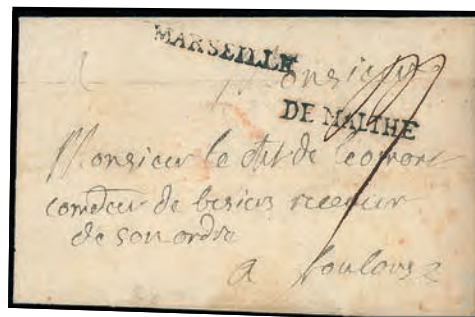 MARSEILLE
Monsieur
DE MALTHE
Monsieur le de
comdeur de besiers receveur
de son ordre
a Toulouse